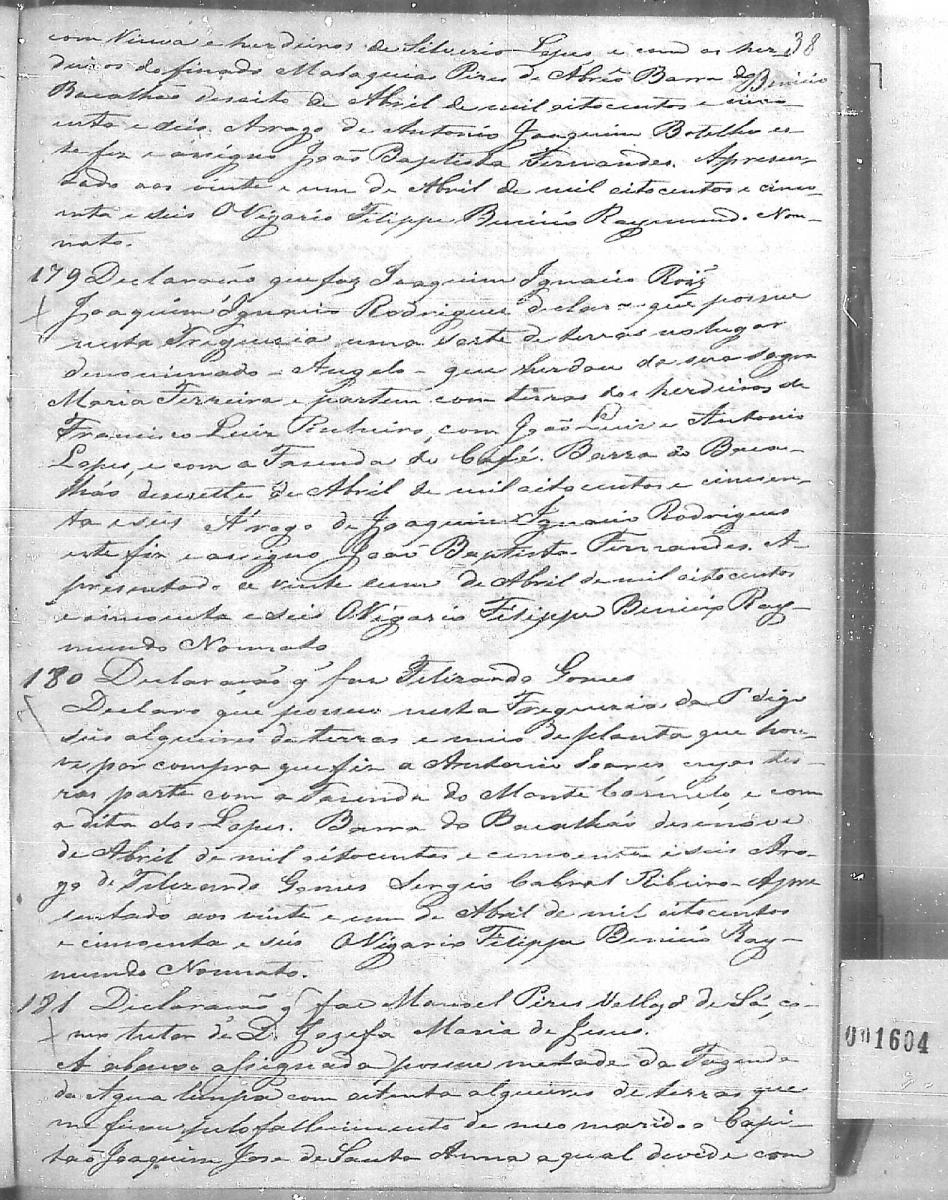 38
com Viuva e herdeiros de Silverio Lopes e com os her-
deiros do finado Malaquias Pires de Abrêo Barra do
Benicio
Bacalháo desoito de Abril de mil oitocentos e cinco-
enta e seis. Arrogo de Antonio Joaquim Botelho es-
te fiz e assigno João Baptista Fernandes. Apresen-
tado aos vinte e um de Abril de mil oitocentos e cinco-
enta e seis O Vigario Filippe Benicio Raymundo Non-
nato.
179 Declaração que faz Joaquim Ignacio Roiz
Joaquim Ignacio Rodrigues declara que possue
nesta Freguezia uma sorte de terras no lugar
denominado - Angelo - que herdou de sua sogra
Maria Ferreira e partem com terras dos herdeiros de
Francisco Luiz com João Luiz e Antonio
Lopes, e com a Fazenda do Café. Barra do Baca-
lháo desesette de Abril de mil oitocentos e cincoen-
ta e seis A rogo de Joaquim Ignacio Rodrigues
este fiz e assigno João Baptista Fernandes. A-
presentado a vinte e um de Abril de mil oitocentos
e cincoenta e seis O Vigario Filippe Benicio Ray-
mundo Nonnato
180 Declaração q̃ faz Felizardo Gomes
Declaro que possuo nesta Freguezia da digo
seis alqueires de terras e meio de planta que hou-
ve por compra que fiz a Antonio Soares cujas ter-
ras parte com a Fazenda do Monte Carmelo, e com
a dita dos Lopes. Barra do Bacalháo desenove
de Abril de mil oitocentos e cincoenta e seis Arro-
go de Felizardo Gomes Sergio Cabral Ribeiro. Apre
sentado aos vinte e um de Abril de mil oitocentos
e cincoenta e seis O Vigario Filippe Benicio Ray-
mundo Nonnato.
181 Declaração q̃ faz Manoel Pires Vellozo de Sá, co-
mo tutor de D. Jozefa Maria de Jesus.
A abaixo assignada possue metade da Fazenda
da Agua limpa com oitenta alqueires de terras que
me ficou pelo fallecimento de meo marido o Capi-
tão Joaquim Jose de Santa Anna a qual devide com
001604